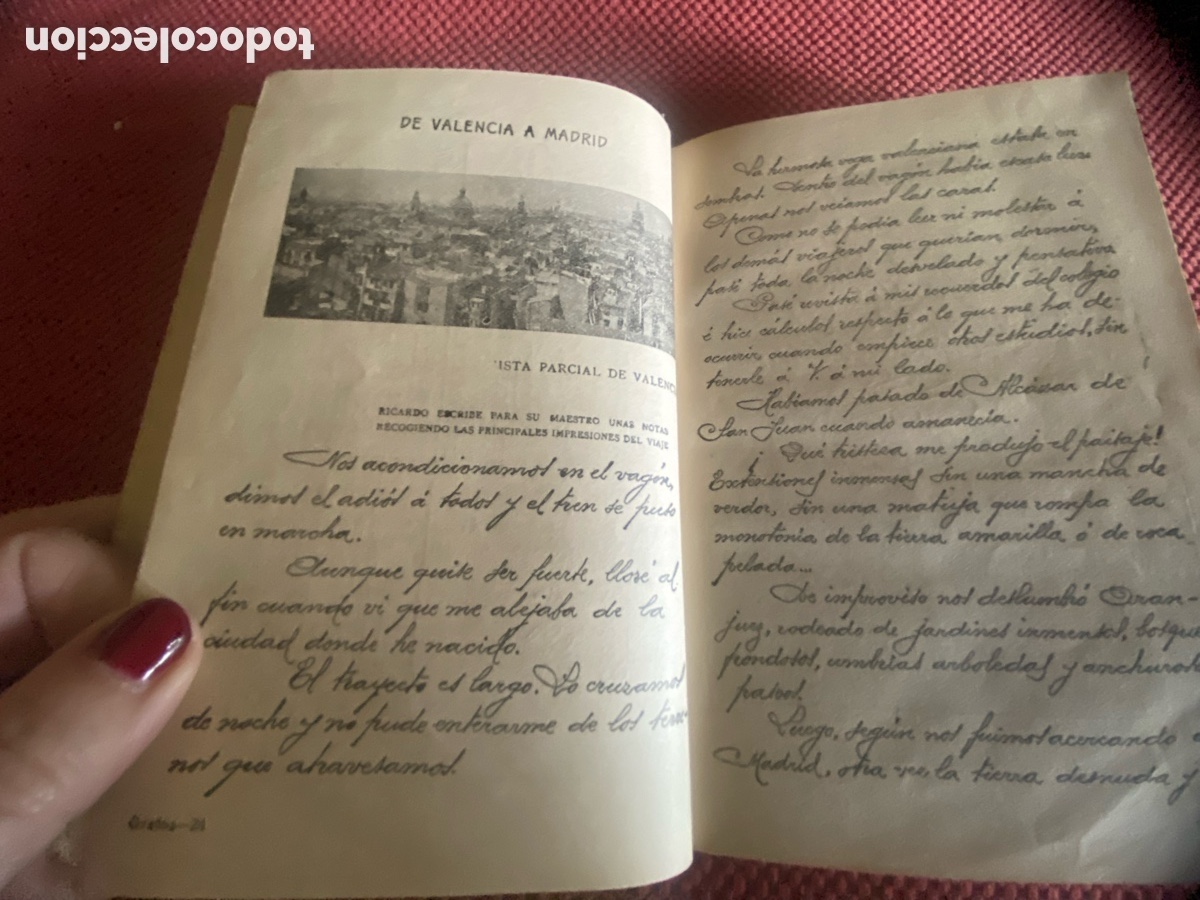 todocoleccion
DE VALENCIA A MADRID
ISTA PARCIAL DE VALENC
RICARDO ESCRIBE PARA SU MAESTRO UNAS NOTAS
RECOGIENDO LAS PRINCIPALES IMPRESIONES DEL VIAJE
Nos acondicionamos en el vagón,
dimos el adiós á todos y el tren se puso
en marcha.
Aunque quise ser fuerte, lloré al
fin cuando vi que me alejaba de la
ciudad donde he nacido.
El trayecto es largo. Lo cruzamos
de noche y no pude enterarme de los terre-
nos que atravesamos.
La hermosa vega valenciana estaba en
sombras. Dentro del vagón había escasa luz.
Apenas nos veíamos las caras.
Como no se podía leer ni molestar á
los demás viajeros que querían dormir,
pasé toda la noche desvelado y pensativo.
Pasé revista á mis recuerdos del colegio
é hice cálculos respecto á lo que me ha de
ocurrir cuando empiece otros estudios, sin
tenerle á V. á mi lado.
Habíamos pasado de Alcázar de
San Juan cuando amanecía.
¡Qué tristeza me produjo el paisaje!
Extensiones inmensas sin una mancha de
verdor, sin una matuja que rompa la
monotonía de la tierra amarilla ó de roca
pelada...
De improviso nos deslumbró Aran-
juez, rodeado de jardines inmensos, bosques
frondosos, umbrías arboledas y anchurosos
paseos.
Luego, según nos fuimos acercando á
Madrid, otra vez la tierra desnuda y